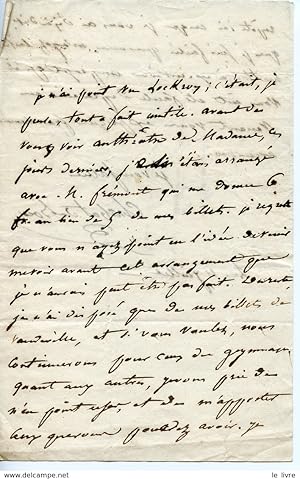 je n'ai point vu Lockroy; c'était, je
pense, tout à fait inutile. avant de
vous voir au théâtre de Madame, ces
jours derniers, j'étais arrangé
avec M. frémont qui me donne 6
fr. au lieu de 5 de mes billets. je regrette
que vous n'ayez point eu l'idée de venir
me voir avant cet arrangement que
je n'aurais peut être pas fait. Du reste,
je n'ai disposé que de mes billets de
vaudeville, et si vous voulez, nous
continuerons pour ceux du gymnase
quant aux autres, je vous prie de
n'en point user, et de m'apporter
ceux que vous pouvez avoir. je
© le-livre